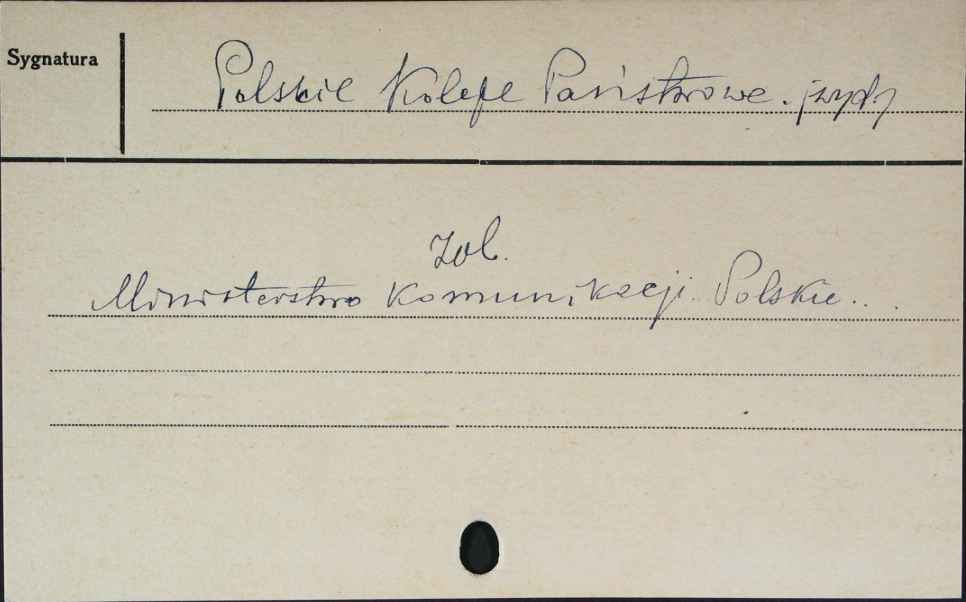 Sygnatura
Polskie Koleje Państwowe.
Zob.
Ministerstwo Komunikacji. Polskie..